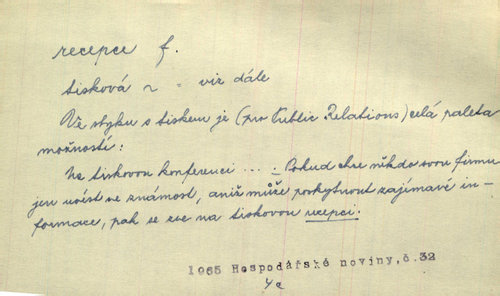 recepce f.
tisková ~ = viz dále
Ve styku s tiskem je (pro Public Relations) celá paleta
možností:
Na tiskovou konferenci ... : Pokud chce někdo svou firmu
jen uvést ve známost, aniž může poskytnout zajímavé in-
formace, pak se zve na tiskovou recepci.
1965 Hospodářské noviny, č. 32